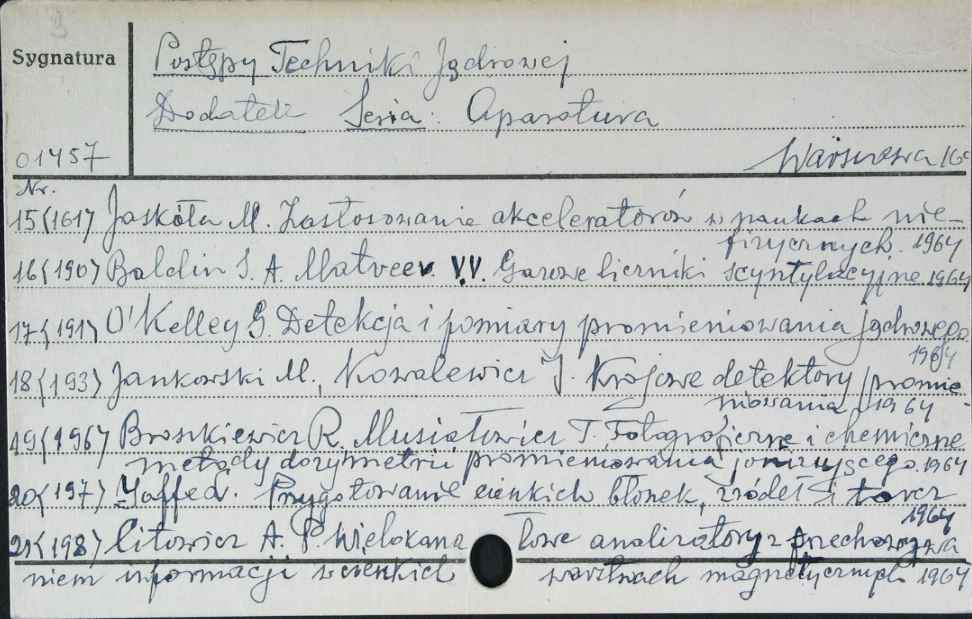 Sygnatura
Postępy Techniki Jądrowej
Dodatek Seria: Aparatura
01457
Warszawa 16
Nr.
15(161) Jaskóła M. Zastosowanie akceleratorów w naukach nie-
fizycznych. 1964
16(190) Baldin S. A. Matveev V.V. Gazowe liczniki scyntylacyjne. 1964
17(191) O'Kelley G. Detekcja i pomiary promieniowania jądrowego.
1964
18(193) Jankowski M., Kowalewicz J. Krajowe detektory promie-
niowania 1964
19(196) Broszkiewicz R. Musiałowicz T. Fotograficzne i chemiczne
metody dozymetrii promieniowania jonizującego. 1964
20(197) Yaffe L. Przygotowanie cienkich błonek, źródeł i tarcz
1964
21(198) Citowicz A. P. Wielokana łowe analizatory z przechowywa
niem informacji w cienkich warstwach magnetycznych 1964